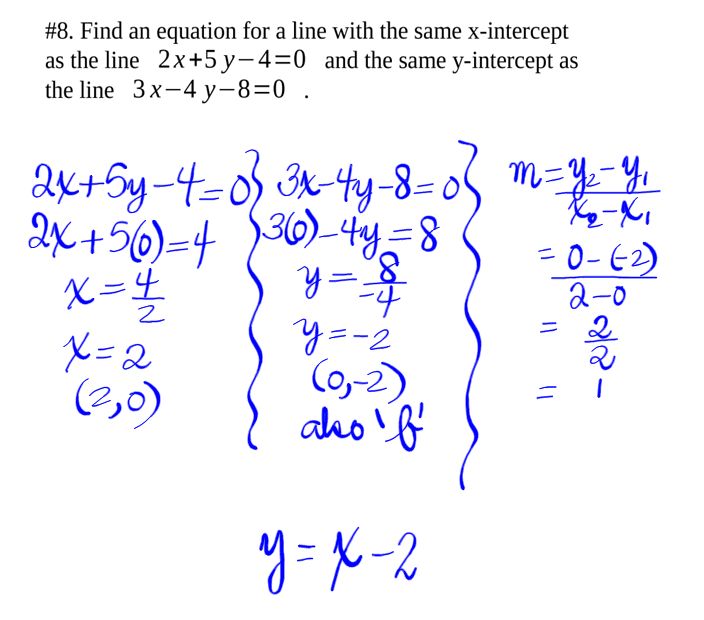 #8. Find an equation for a line with the same x-intercept
as the line 2x+5y−4=0 and the same y-intercept as
the line 3x−4y−8=0 .
2x+5y-4=0
2x+5(0)=4
x=4/2
x=2
(2,0)
3x-4y-8=0
3(0)-4y=8
y=8/-4
y=-2
(0,-2)
also 'b'
m=y₂-y₁/x₂-x₁
=0-(-2)/2-0
=2/2
=1
y=x-2